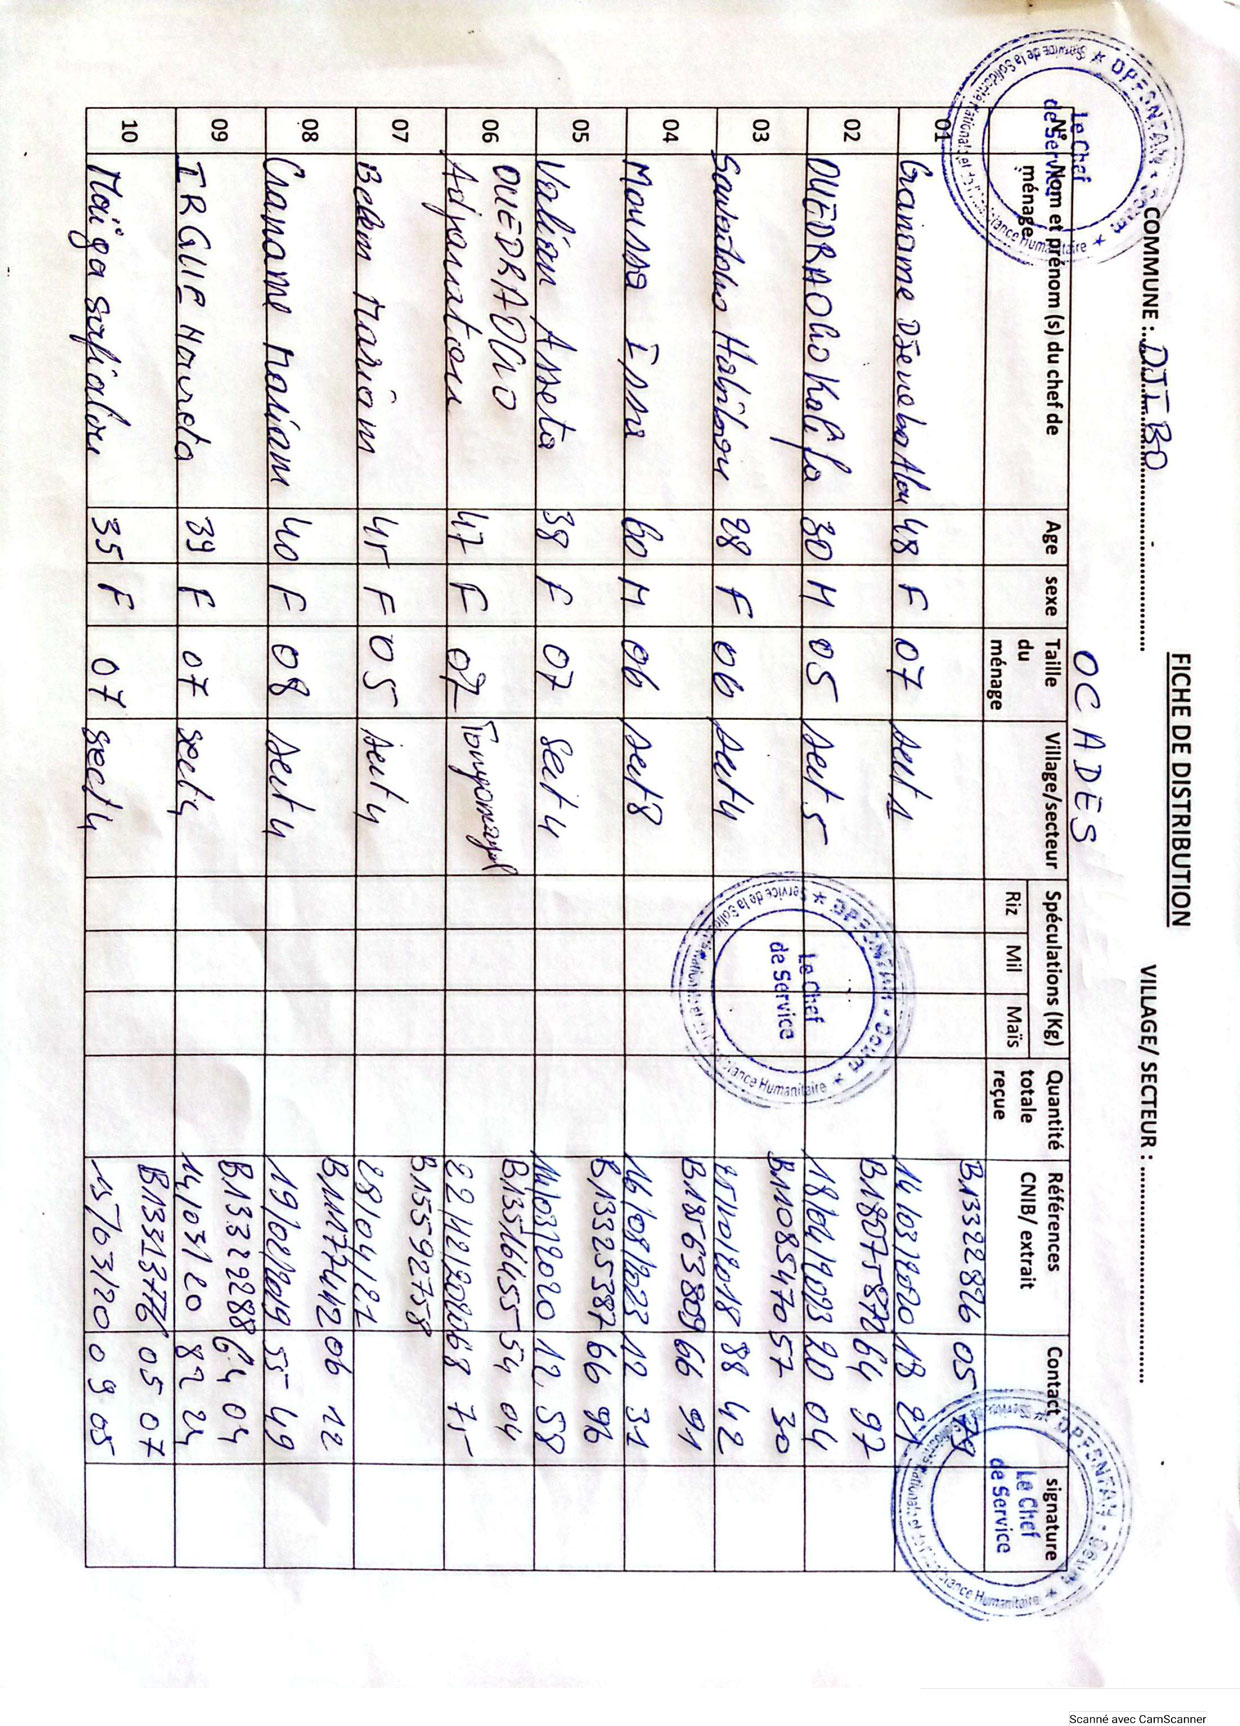 FICHE DE DISTRIBUTION
COMMUNE : DJIBO VILLAGE/ SECTEUR :
OCADES
N° Nom et prénom (s) du chef de ménage Age sexe Taille du ménage Village/secteur Spéculations (Kg) Quantité totale reçue Références CNIB/ extrait Contact signature
Riz Mil Maïs
01 Ganame Djeneba Alou 48 F 07 sect 1 B13322826 14/03/2020 05 79 18 21
02 OUEDRAOGO Kalifa 30 M 05 sect 5 18/04/2023 64 97 20 04
03 Sawadogo Habibou 28 F 06 sect 4 B11085470 57 30 88 42
04 Moussa Issa 60 M 06 sect 8 B18563809 16/08/2023 66 91 12 31
05 Asseta 38 F 07 sect 4 B13325387 14/03/2020 66 96 12 58
06 OUEDRAOGO Adjaratou 47 F 07 B13516455 54 04 68 75
07 Belem Mariam 45 F 05 sect 4 B15592758 28/04/21
08 Ganame Mariam 40 F 08 sect 4 B11177442 19/02/2019 06 12 55 49
09 39 F 07 sect 4 B13329288 14/03/20 64 04 82 24
10 Maïga Safiatou 35 F 07 sect 4 B13313776 15/03/20 05 07 09 05
Le Chef
de Service
Service de la Solidarité Nationale et de l'Assistance Humanitaire
Le Chef
de Service
Service de la Solidarité Nationale et de l'Assistance Humanitaire
Le Chef
de Service
Scanné avec CamScanner